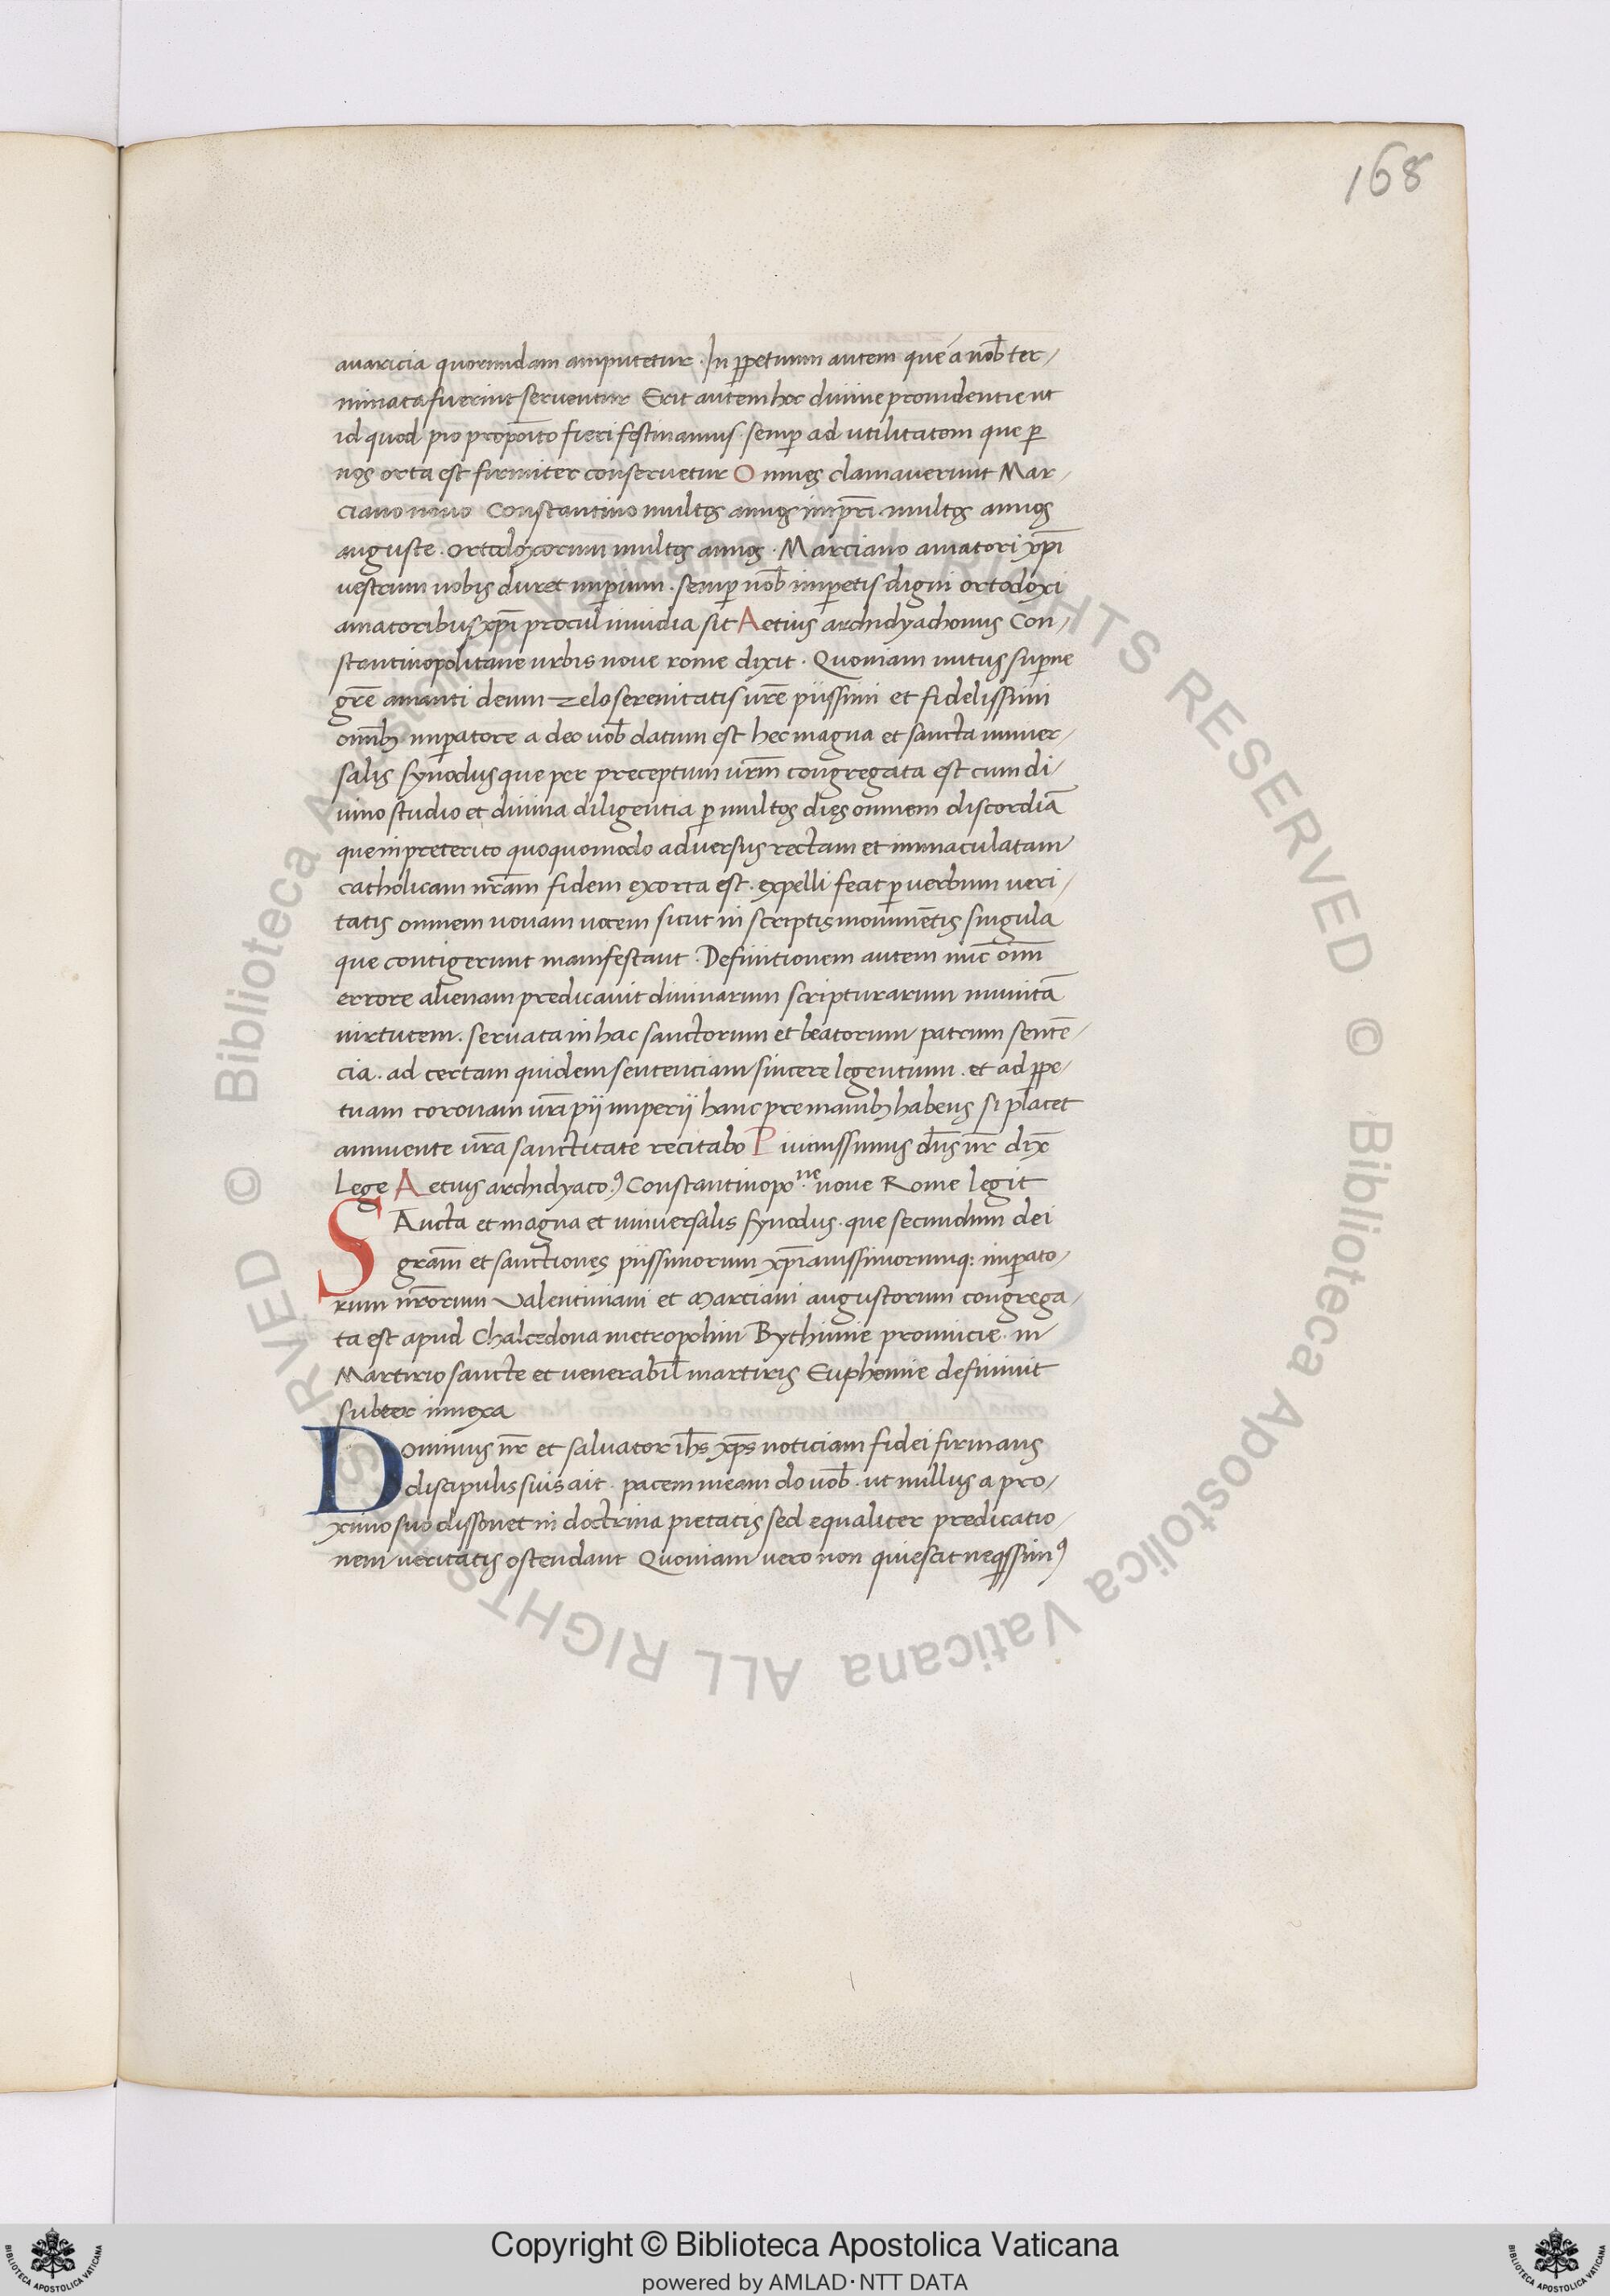 168
auaricia quorundam amputetur . In ꝑpetuum autem que a nob̄ ter-
minata fuerint seruentur Erit autem hoc diuine prouidentie ut
id quod pio proposito fieri festinamus . semꝑ ad utilitatem que ꝑ
nos orta est firmiter conseruetur Omnes clamauerunt Mar-
ciano nouo Constantino multos annos imꝑri . multos annos
auguste . ortodoxorum multos annos . Marciano amatori xp̄i
uestrum nobis duret imꝑium . semꝑ nob̄ imꝑetis digni ortodoxi
amatoribus xp̄i procul inuidia sit Aetius archidyachonus Con-
stantinopolitane urbis noue rome dixit . Quoniam nutus suꝑne
gr̄e amanti deum zelo serenitatis ur̄e piissimi et fidelissimi
omībꝫ imꝑatore a deo uob̄ datum est hec magna et sancta uniuer-
salis synodus que per preceptum ur̄m congregata est cum di-
uino studio et diuina diligentia ꝑ multos dies omnem discordiā
que in preterito quoquomodo aduersus rectam et inmaculatam
catholicam nr̄am fidem exorta est . expelli fecit ꝑ uerbum ueri-
tatis omnem nouam uocem sicut in scriptis monumētis singula
que contigerunt manifestant . Definitionem autem nūc om̄i
errore alienam predicauit diuinarum scripturarum munitā
uirtutem . seruata in hac sanctorum et beatorum patrum sentē-
cia . ad certam quidem sentenciam sincere legentium . et ad ꝑpe-
tuam coronam ur̄i pij imperij hanc pre manibꝫ habens si placet
annuente ur̄a sanctitate recitabo Piuinissimus dn̄s nr̄ dix̄
Lege Aetius archidyacoꝰ Constantinopo.ne noue Rome legit
SAncta et magna et uniuersalis synodus . que secundum dei
gram̄ et sanctiones piissimorum xp̄ianissimorumqꝫ imꝑato-
rum nr̄orum Valentiniani et Marciani augustorum congrega-
ta est apud Chalcedona metropolim Bythinie prouincie . in
Martirio sancte et uenerabil̄ martiris Euphemie definiuit
subter innexa
Dominus nr̄ et saluator ih̄s xp̄s noticiam fidei firmans
discipulis suis ait . pacem meam do uob̄ . ut nullus a pro-
ximo suo dissonet in doctrina pietatis sed equaliter predicatio-
nem ueritatis ostendant Quoniam uero non quiescit neqssimꝰ
© Biblioteca Apostolica Vaticana ALL RIGHTS RESERVED © Biblioteca Apostolica Vaticana ALL RIGHTS RESERVED
Copyright © Biblioteca Apostolica Vaticana
powered by AMLAD·NTT DATA
BIBLIOTECA APOSTOLICA VATICANA
BIBLIOTECA APOSTOLICA VATICANA